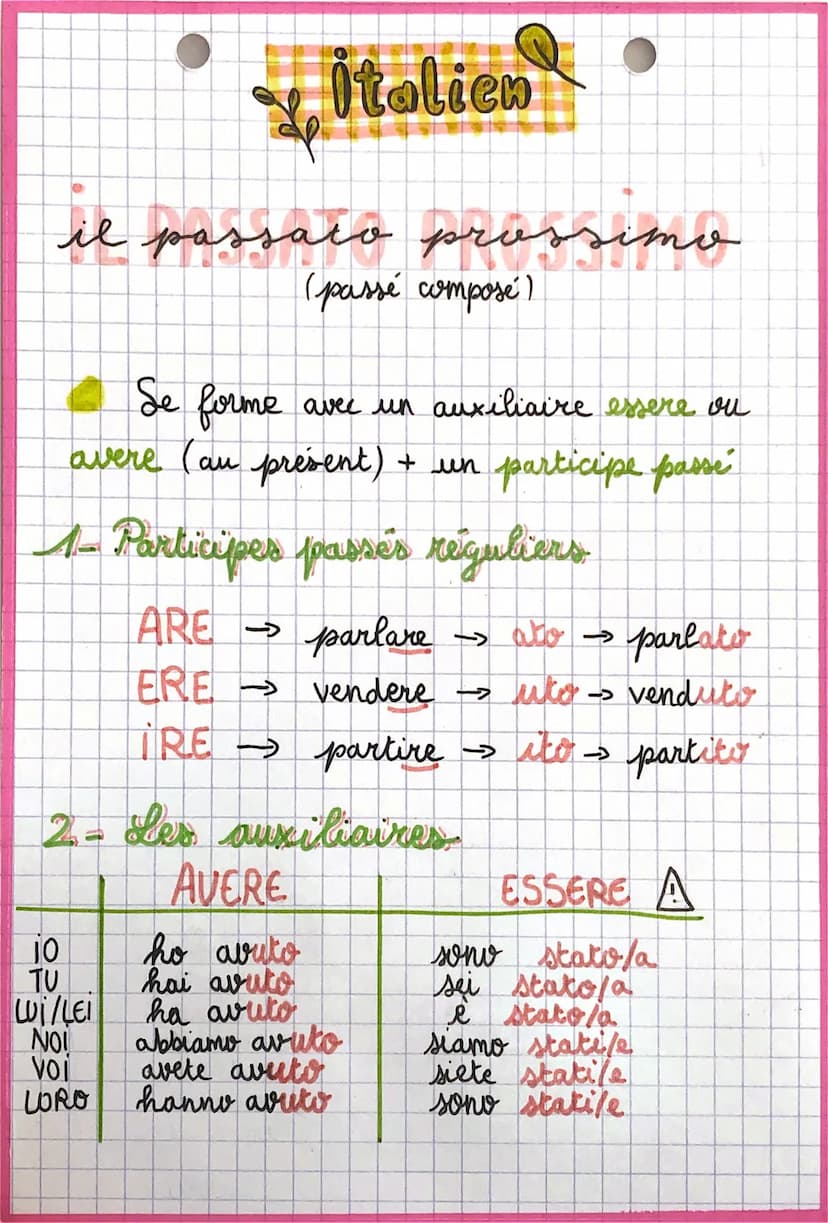 italien
il passato prossimo
(passé composé)
Se forme avec un auxiliaire essere ou
avere (au présent) + un participe passé
1- Participes passés réguliers
ARE → parlare → ato → parlato
ERE → vendere → uto → venduto
iRE → partire → ito → partito
2- Les auxiliaires
AVERE ESSERE ⚠
iO ho avuto sono stato/a
TU hai avuto sei stato/a
LUi/LEi ha avuto è stato/a
NOi abbiamo avuto siamo stati/e
VOi avete avuto siete stati/e
LORO hanno avuto sono stati/e